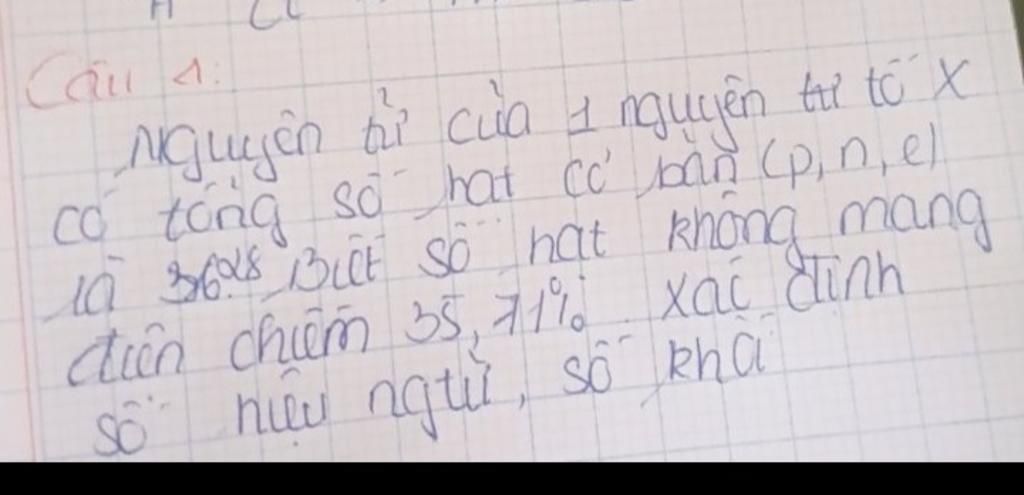 Câu 1:
Nguyên tử của 1 nguyên tử tố X
có tổng số hạt cơ bản (p, n, e)
là 28 Biết số hạt không mang
điện chiếm 35,71% xác định
số hiệu ngtử, số khối